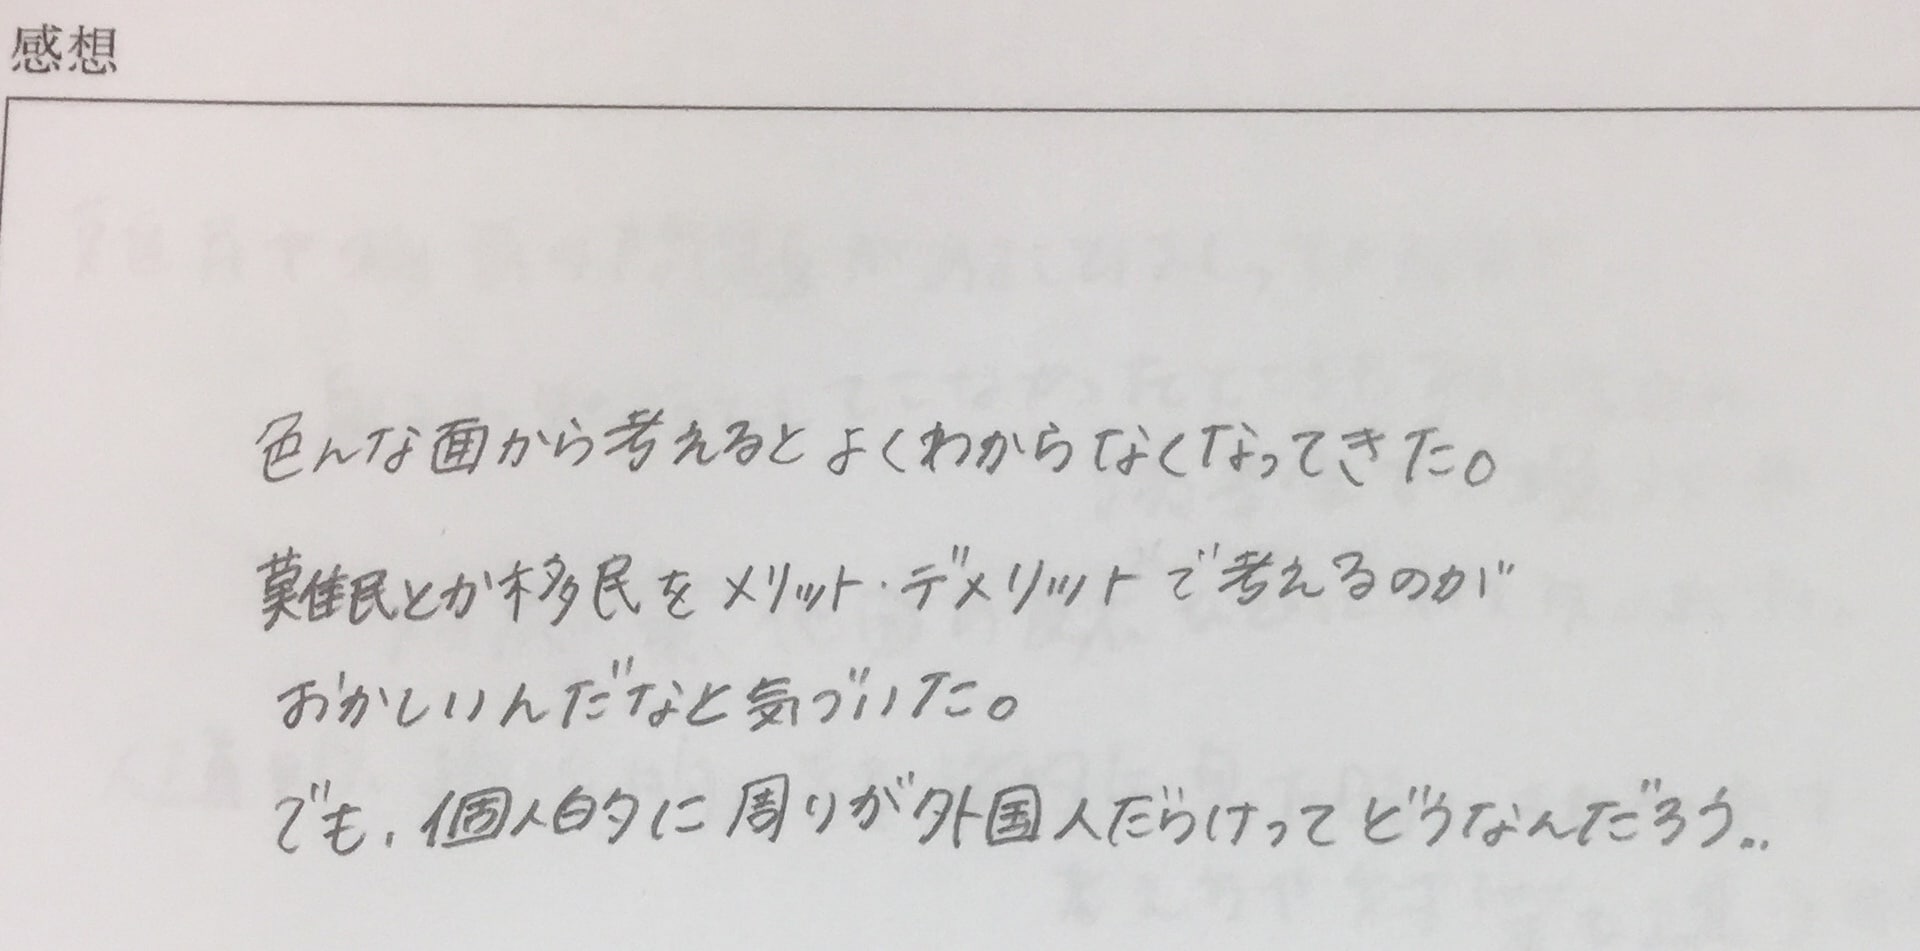 感想
色んな面から考えるとよくわからなくなってきた。
難民とか移民をメリット・デメリットで考えるのが
おかしいんだなと気づいた。
でも、個人的に周りが外国人だらけってどうなんだろう..